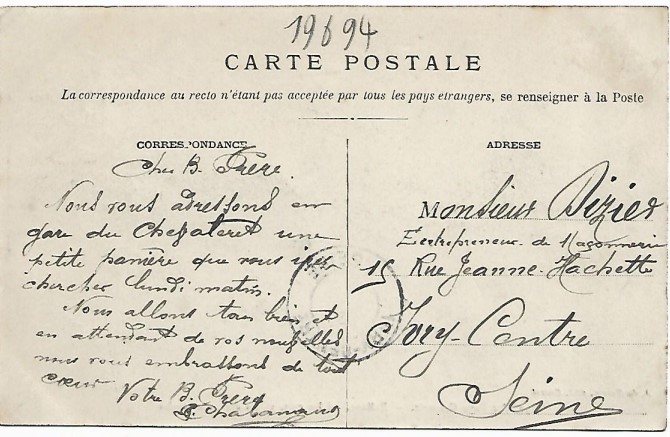 19694
CARTE POSTALE
La correspondance au recto n'étant pas acceptée par tous les pays etrangers, se renseigner à la Poste
CORRESPONDANCE
Cher B. Frère.
Nous vous adressons en
gare du Chevaleret une
petite panière que vous irez
chercher lundi matin.
Nous allons tous bien et
en attendant de vos nouvelles
nous vous embrassons de tout
cœur
Votre B. Frère
ADRESSE
Monsieur Dizier
Entrepreneur de Maçonnerie
15 Rue Jeanne-Hachette
Ivry-Centre
Seine